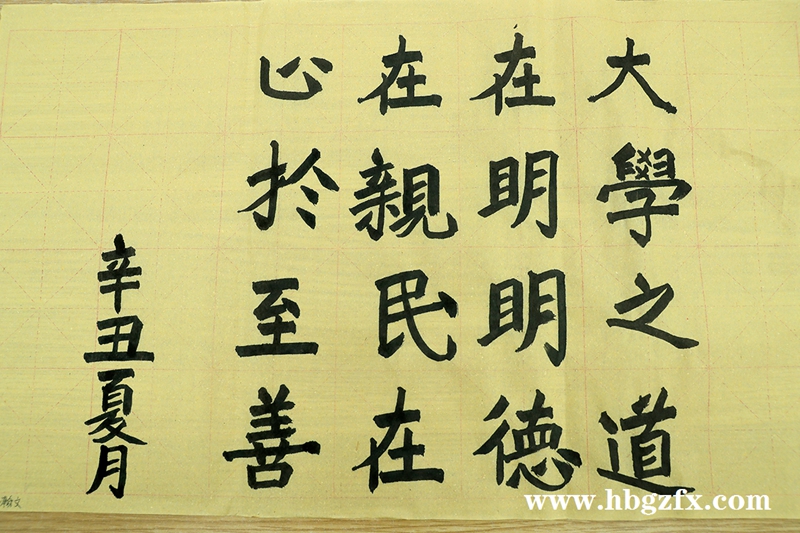 大學之道
在明明德
在親民在
止於至善
辛丑夏月
www.hbgzfx.com